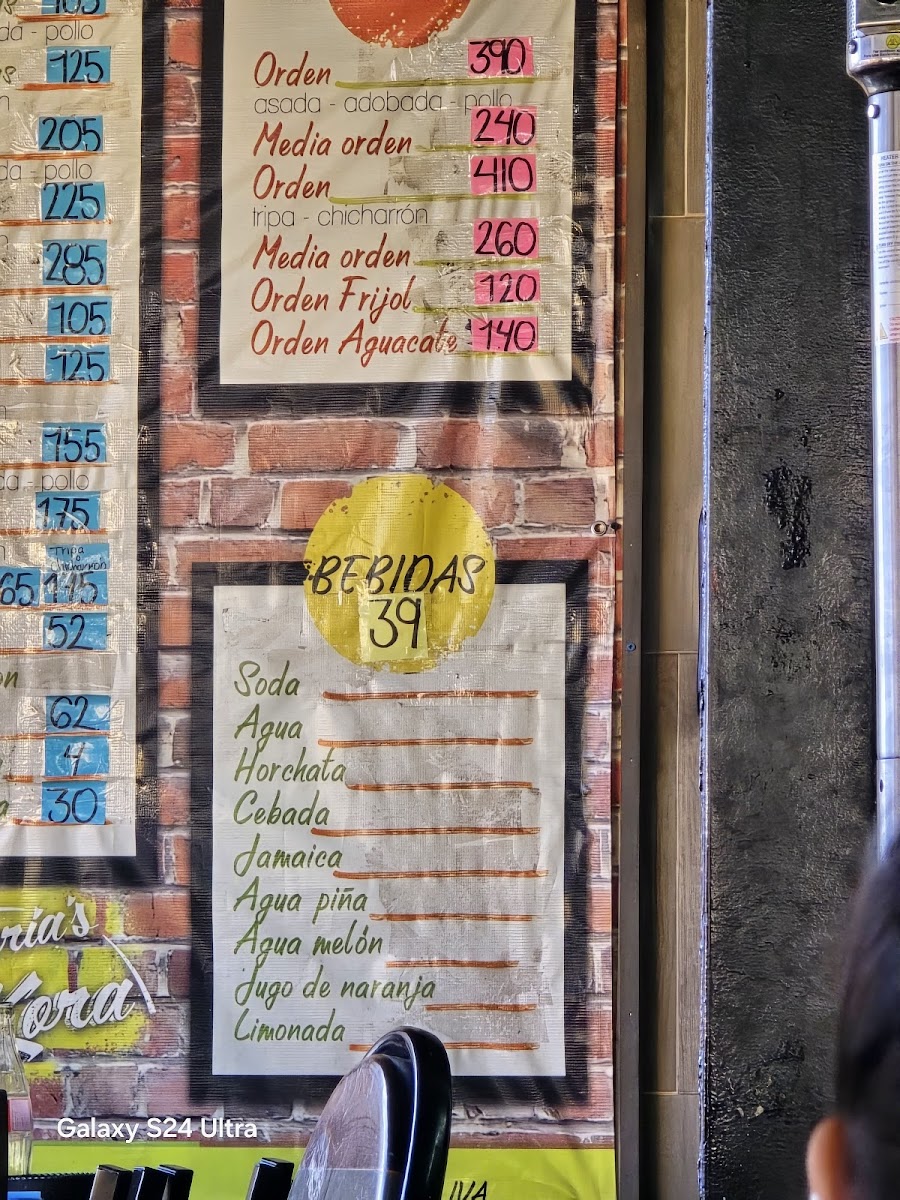 105
da - pollo
125
205
da - pollo
225
285
105
125
155
da - pollo
175
Tripa
o
chicharron
65 145
52
62
4
30
ria's
Kera
Orden 390
asada - adobada - pollo
Media orden 240
Orden 410
tripa - chicharrón
Media orden 260
Orden Frijol 120
Orden Aguacate $140
BEBIDAS
39
Soda
Agua
Horchata
Cebada
Jamaica
Agua piña
Agua melón
Jugo de naranja
Limonada
IVA
Galaxy S24 Ultra